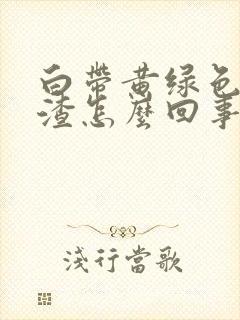 白帶黄绿色
渣怎麼回事
淺行當歌